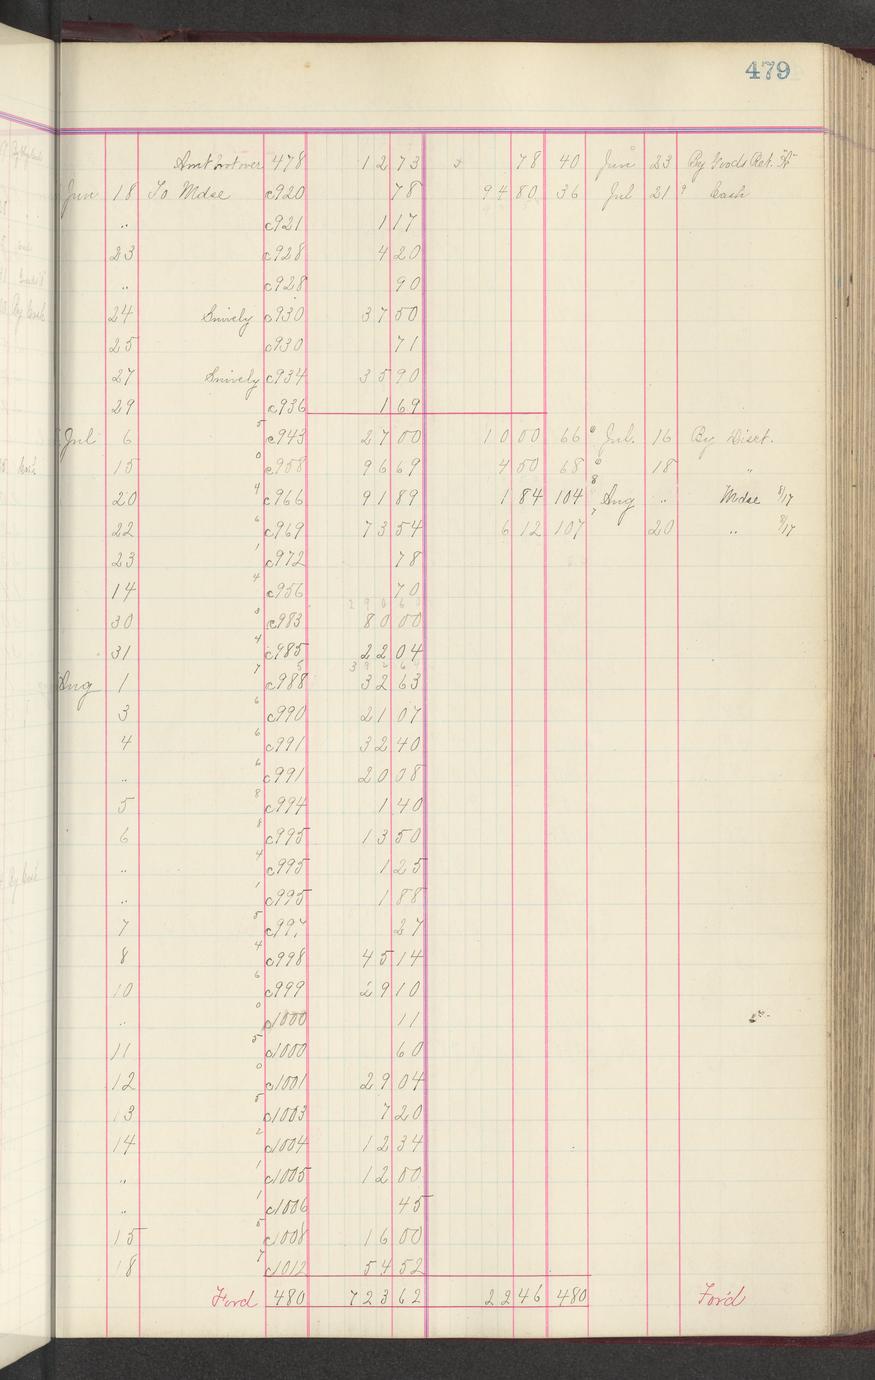 479
Amt brot over 478 12 73 78 40 Jun 23 By Goods Ret.
Jun 18 To Mdse c920 78 94 80 36 Jul 21 9 Cash
" c921 1 17
23 c928 4 20
" c928 90
24 Snively c930 37 50
25 c930 71
27 Snively c934 35 90
29 c936 1 69
Jul 6 5 c943 27 00 10 00 66 6 Jul. 16 By Disct.
15 0 c958 96 69 4 50 68 6 18 "
20 4 c966 91 89 1 84 104 8 Aug " Mdse 8/17
22 6 c969 73 54 6 12 107 7 20 " 8/17
23 1 c972 78
14 4 c956 70
30 3 c983 80 00
31 4 c985 22 04
Aug 1 7 c988 32 63
3 6 c990 21 07
4 6 c991 32 40
" 6 c991 20 08
5 8 c994 1 40
6 8 c995 13 50
" 4 c995 1 25
" 1 c995 1 88
7 5 c997 27
8 4 c998 45 14
10 6 c999 29 10
" 0 c1000 11
11 5 c1000 60
12 0 c1001 29 04
13 5 c1003 7 20
14 2 c1004 12 34
" 1 c1005 12 00
" 1 c1006 45
15 5 c1008 16 00
18 7 c1012 54 52
Ford 480 723 62 22 46 480 Ford